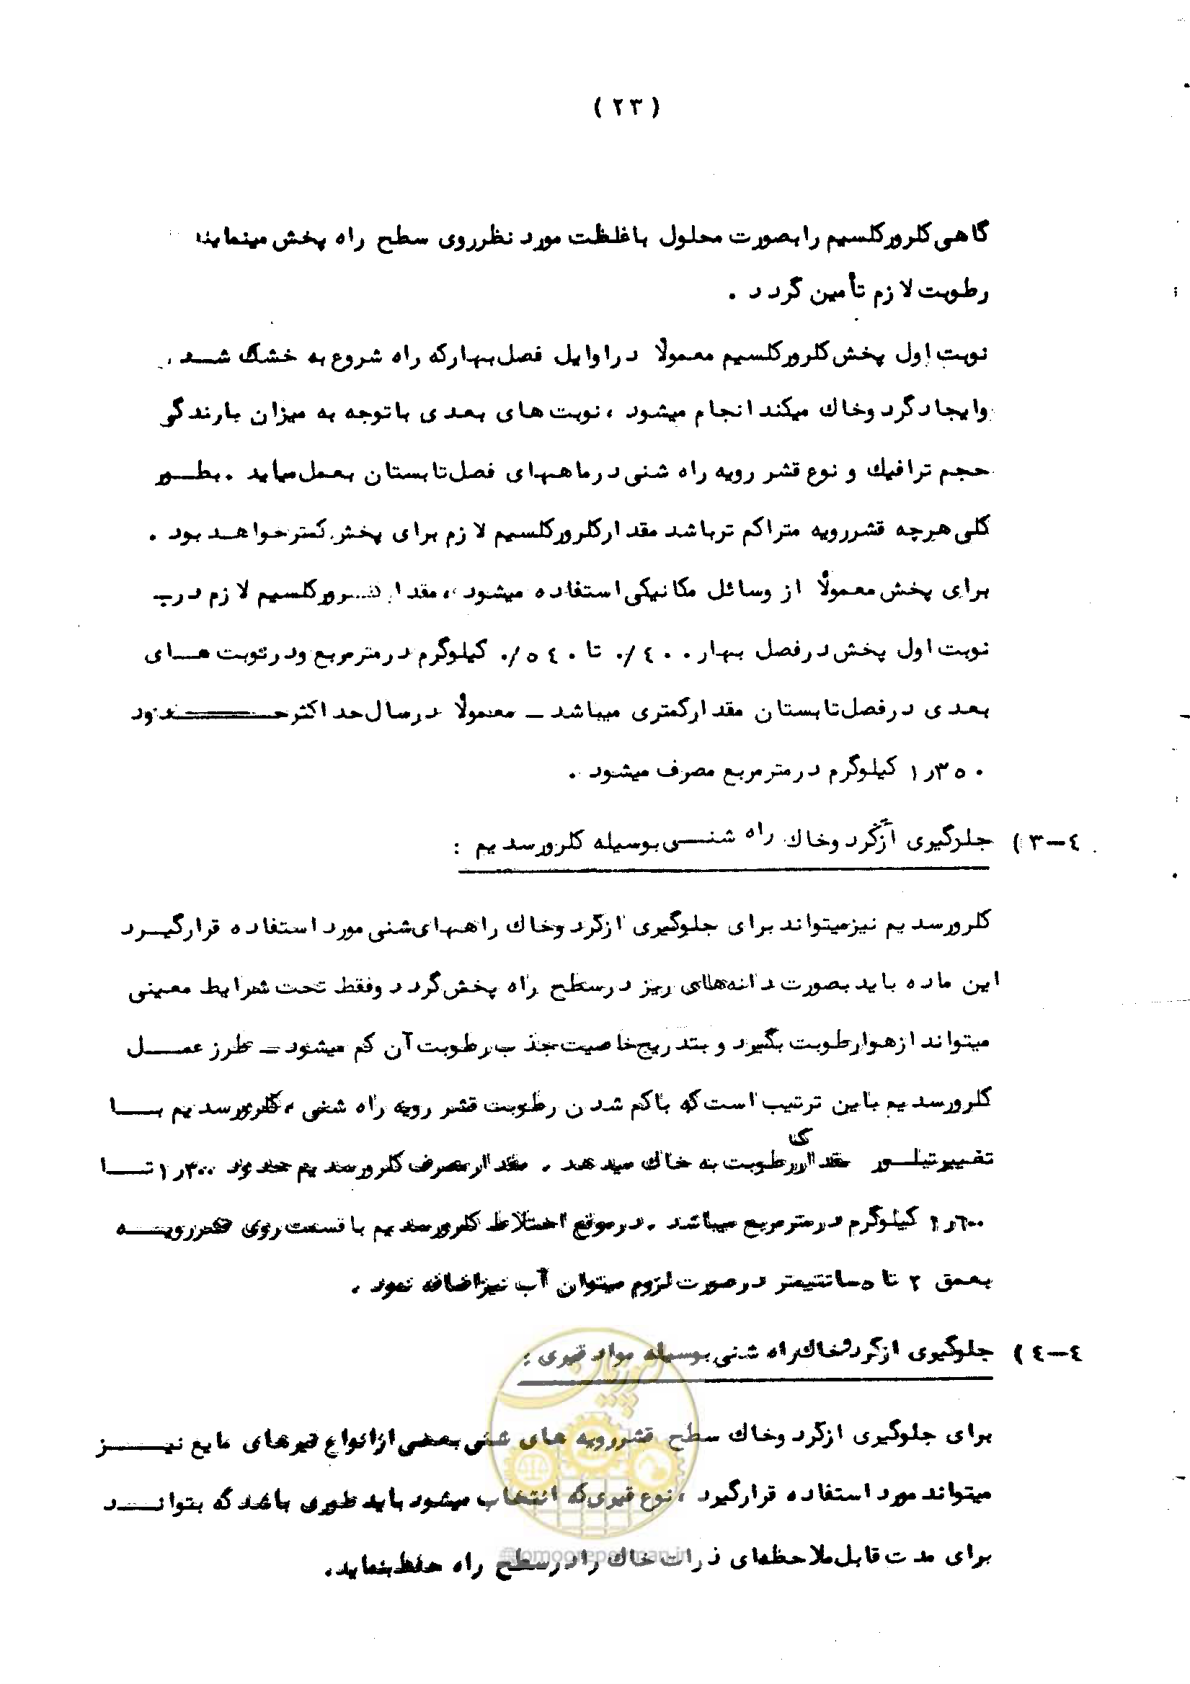 (۲۳)
گاهی کلرورکلسیم را بصورت محلول با غلظت مورد نظر روی سطح راه پخش مینمایند
رطوبت لازم تأمین گردد .
نوبت اول پخش کلرورکلسیم معمولاً در اوایل فصل بهار که راه شروع به خشک شـــد
وایجاد گرد وخاک میکند انجام میشود ، نوبت های بعدی با توجه به میزان بارندگی
حجم ترافیک و نوع قشر رویه راه شنی در ماههای فصل تابستان بعمل میاید . بطـــور
کلی هرچه قشر رویه متراکم تر باشد مقدار کلرورکلسیم لازم برای پخش کمتر خواهـد بود .
برای پخش معمولاً از وسائل مکانیکی استفاده میشود ، مقدار کلرورکلسیم لازم در
نوبت اول پخش در فصل بهار ۰/۴۰۰ تا ۰/۵۴۰ کیلوگرم در مترمربع ودر نوبت هــای
بعدی در فصل تابستان مقدار کمتری میباشد ـ معمولاً در سال حد اکثر حـــــدود
۱٫۳۵۰ کیلوگرم در مترمربع مصرف میشود .
۴-۳) جلوگیری از گرد وخاک راه شنـــی بوسیله کلرورسدیم :
کلرورسدیم نیز میتواند برای جلوگیری از گرد وخاک راههای شنی مورد استفاده قرار گیــرد
این ماده باید بصورت دانه‌های ریز در سطح راه پخش گردد وفقط تحت شرایط معینی
میتواند از هوا رطوبت بگیرد و بتدریج خاصیت جذب رطوبت آن کم میشود ـ طرز عمـــل
کلرورسدیم باین ترتیب است که با کم شدن رطوبت قشر رویه راه شنی ، کلرورسدیم بـــا
تغییر تبلــور مقداری رطوبت به خاک میدهد . مقدار مصرف کلرورسدیم حدود ۱٫۳۰۰ تـــا
۱٫۶۰۰ کیلوگرم در مترمربع میباشد . در موقع اختلاط کلرورسدیم با قسمت روی قشر رویـــه
بعمق ۲ تا ۵ سانتیمتر در صورت لزوم میتوان آب نیز اضافه نمود .
۴-۴) جلوگیری از گرد وخاک راه شنی بوسیله مواد قیری :
برای جلوگیری از گرد وخاک سطح قشر رویه های شنی بعضی از انواع قیرهای مایع نیـــز
میتواند مورد استفاده قرار گیرد ، نوع قیری که انتخاب میشود باید طوری باشد که بتوانـــد
برای مدت قابل ملاحظه‌ای ذرات خاک را در سطح راه حفظ بنماید .
@omoorepeyman.ir